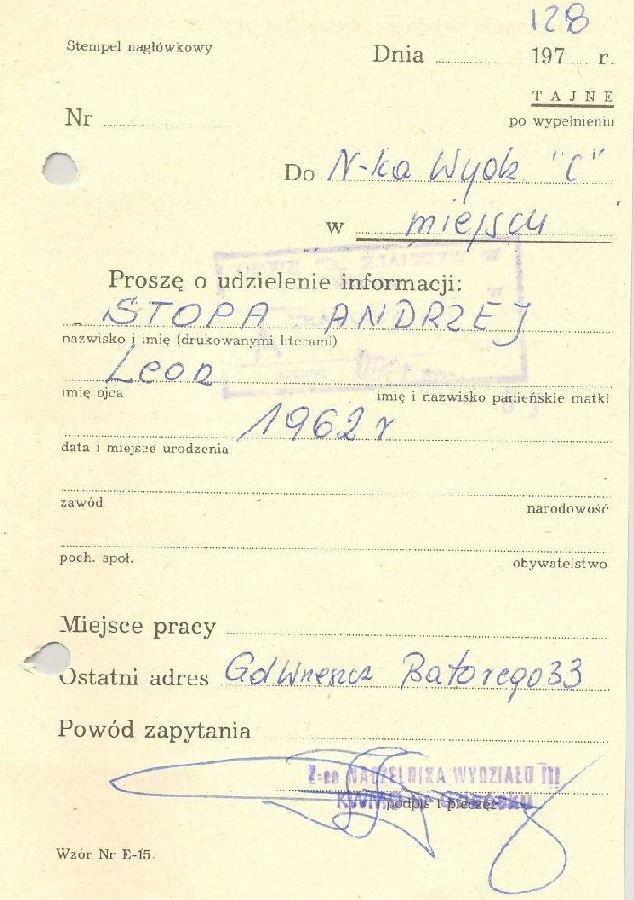 128
Stempel nagłówkowy
Dnia 197 r.
TAJNE
Nr
po wypełnieniu
Do N-ka Wydz "C"
w miejscu
Proszę o udzielenie informacji:
STOPA ANDRZEJ
nazwisko i imię (drukowanymi literami)
Leon
imię ojca imię i nazwisko panieńskie matki
1962 r
data i miejsce urodzenia
zawód narodowość
poch. społ. obywatelstwo
Miejsce pracy
Ostatni adres Gd Wrzeszcz Batorego 33
Powód zapytania
Z-ca NACZELNIKA WYDZIAŁU III
podpis i pieczęć
Wzór Nr E-15.